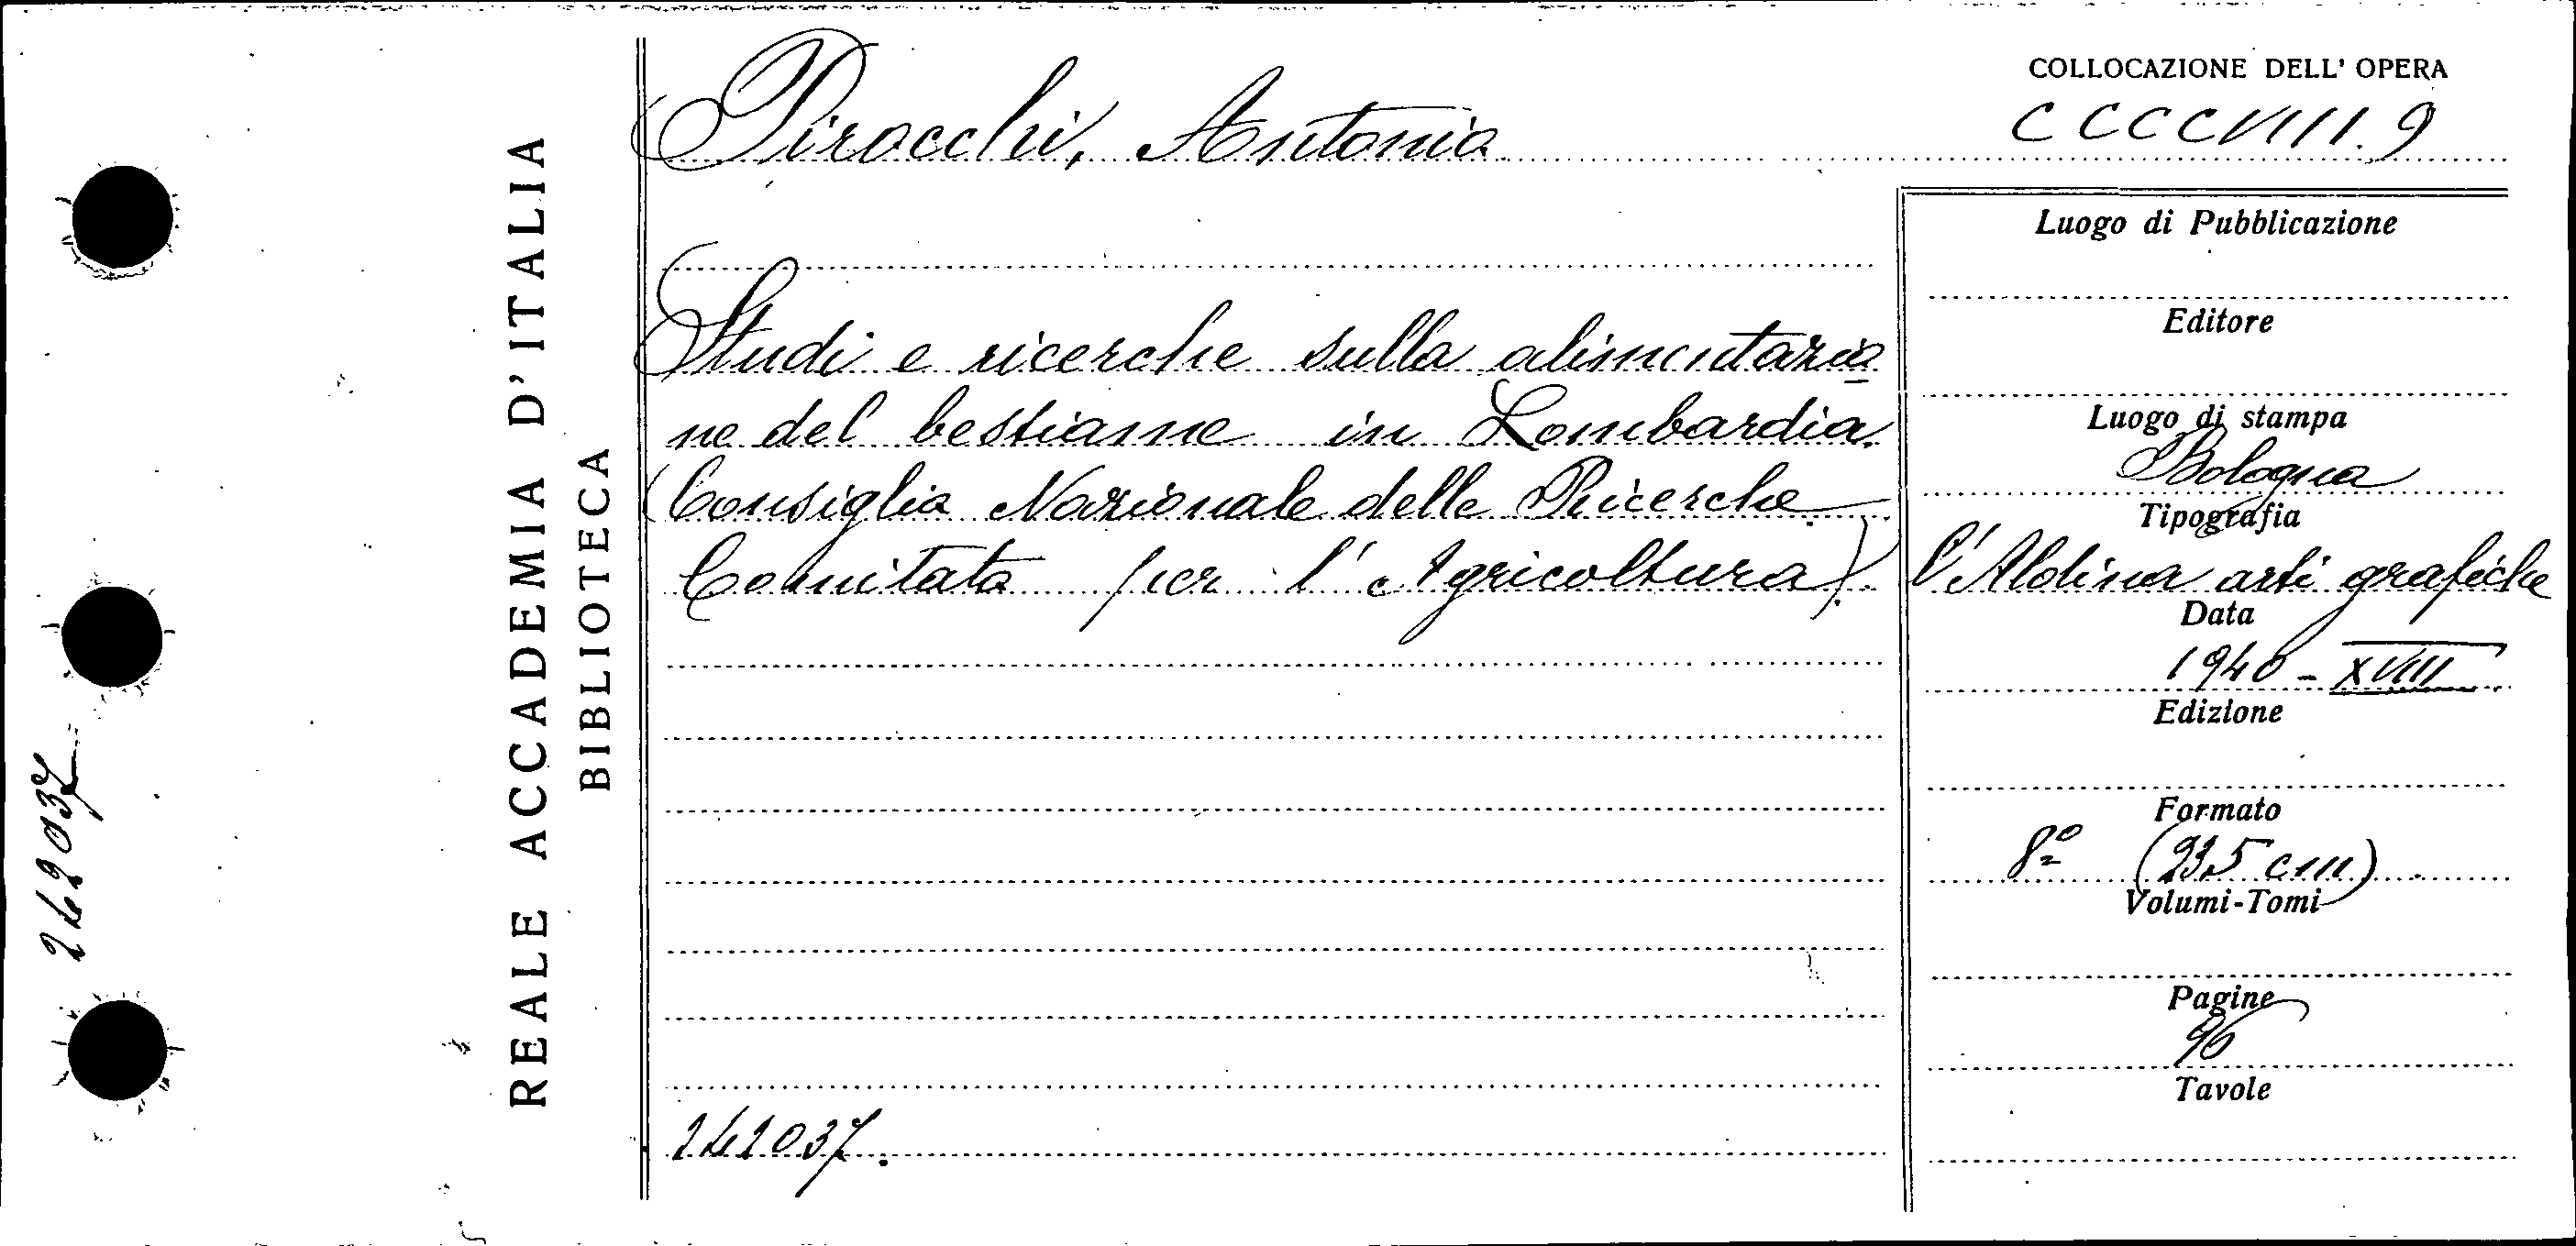 COLLOCAZIONE DELL' OPERA
Pirocchi, Antonio
CCCCVIII.9
Studi e ricerche sulla alimentazio
ne del bestiame in Lombardia.
(Consiglio Nazionale delle Ricerche.
Comitato per l'Agricoltura).
Luogo di Pubblicazione
Editore
Luogo di stampa
Bologna
Tipografia
l'Aldina arti grafiche
Data
1940 - XVIII
Edizione
Formato
8º (23.5 cm)
Volumi-Tomi
Pagine
96
Tavole
242037.
REALE ACCADEMIA D'ITALIA
BIBLIOTECA
242037